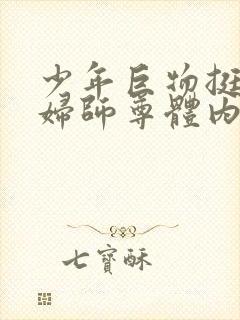 少年巨物挺
婦師尊體内
七寶酥